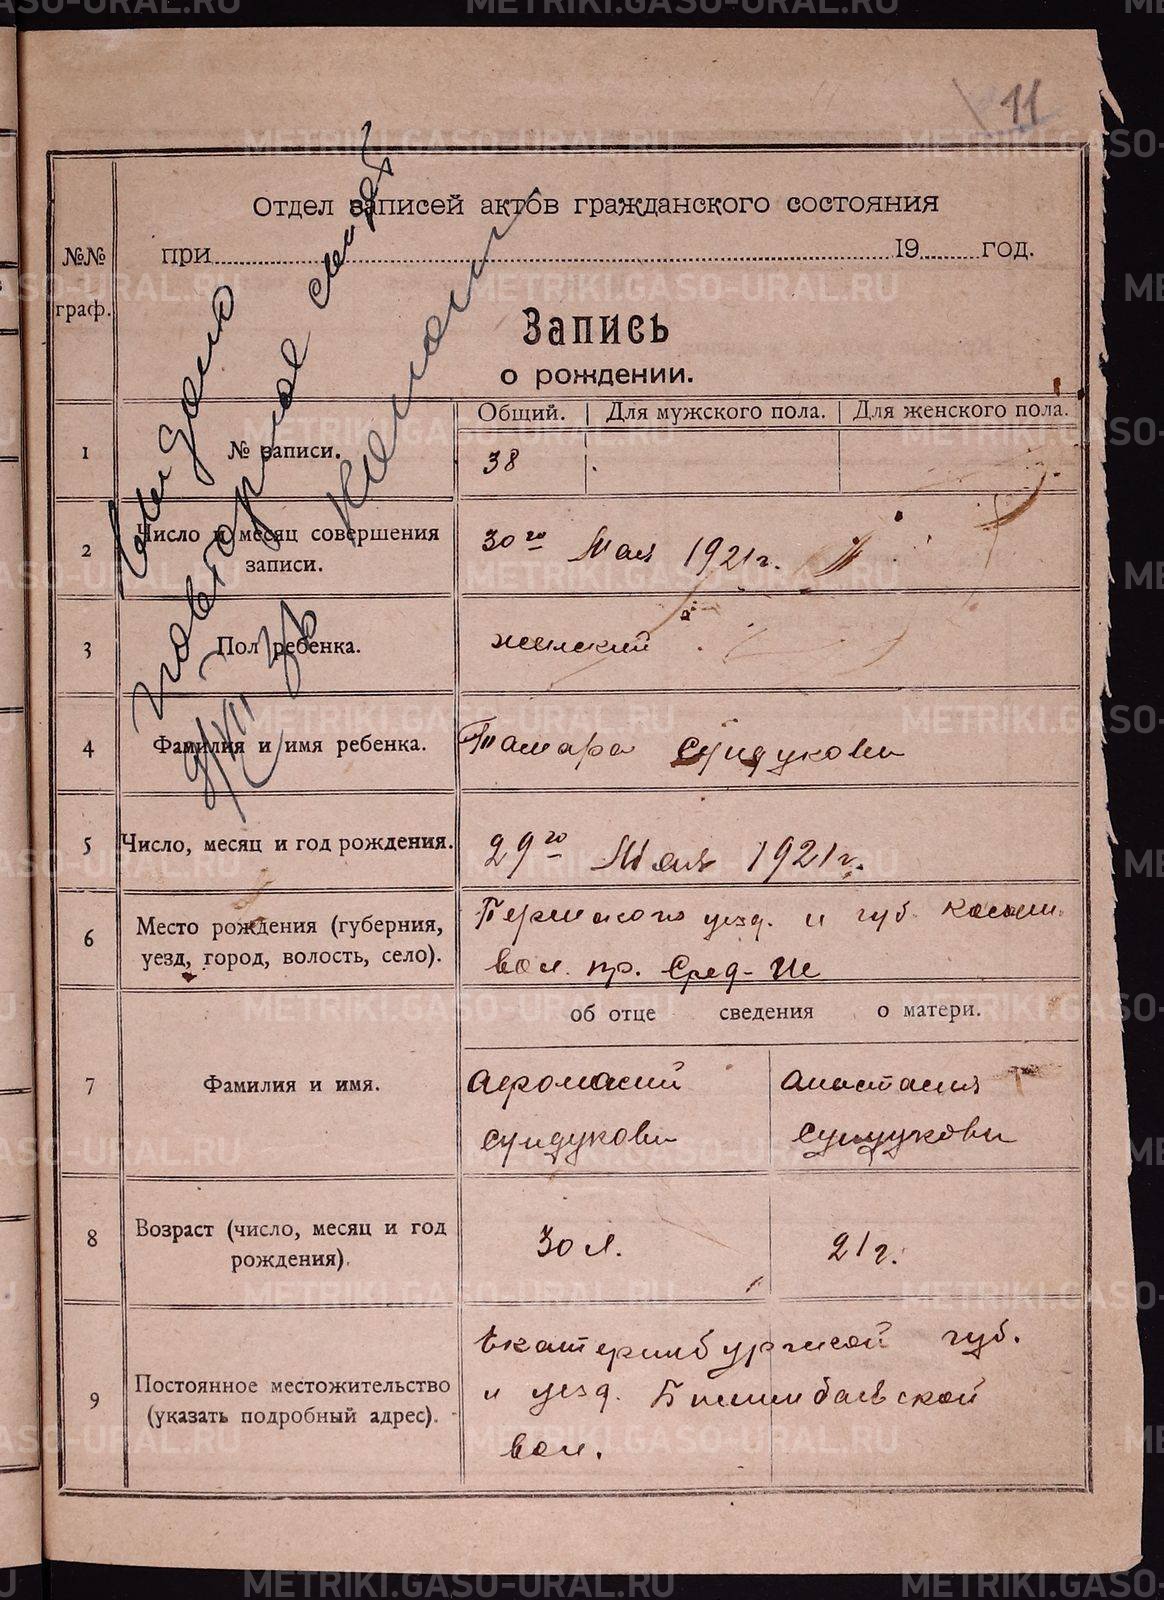 11
Отдел записей актов гражданского состояния
при 19 год.
№№
граф.
Запись
о рождении.
Выдано
повторное свид.
1 № записи. Общий. Для мужского пола. Для женского пола.
38
2 Число и месяц совершения
записи.
30го Мая 1921г.
3 Пол ребенка. женский
4 Фамилия и имя ребенка. Тамара Сундукова
5 Число, месяц и год рождения. 29го Мая 1921г.
6 Место рождения (губерния,
уезд, город, волость, село).
Пермского уезд. и губ.
вол. пр. Сред-
об отце сведения о матери.
7 Фамилия и имя.
Афонасий Анастасия
Сундуковы Сундуковы
8 Возраст (число, месяц и год
рождения).
30 л. 21 г.
9 Постоянное местожительство
(указать подробный адрес).
Екатеринбургской губ.
и уезд. Билимбаевской
вол.
METRIKI.GASO-URAL.RU